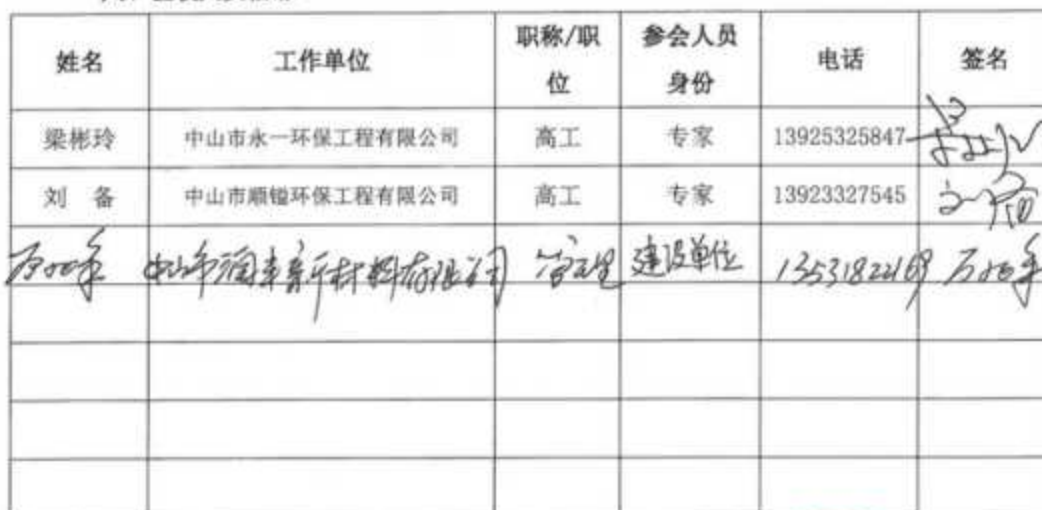 姓名 工作单位 职称/职位 参会人员身份 电话 签名
梁彬玲 中山市永一环保工程有限公司 高工 专家 13925325847
刘 备 中山市顺镒环保工程有限公司 高工 专家 13923327545 刘备
中山市 新材料有限公司 管理 建设单位